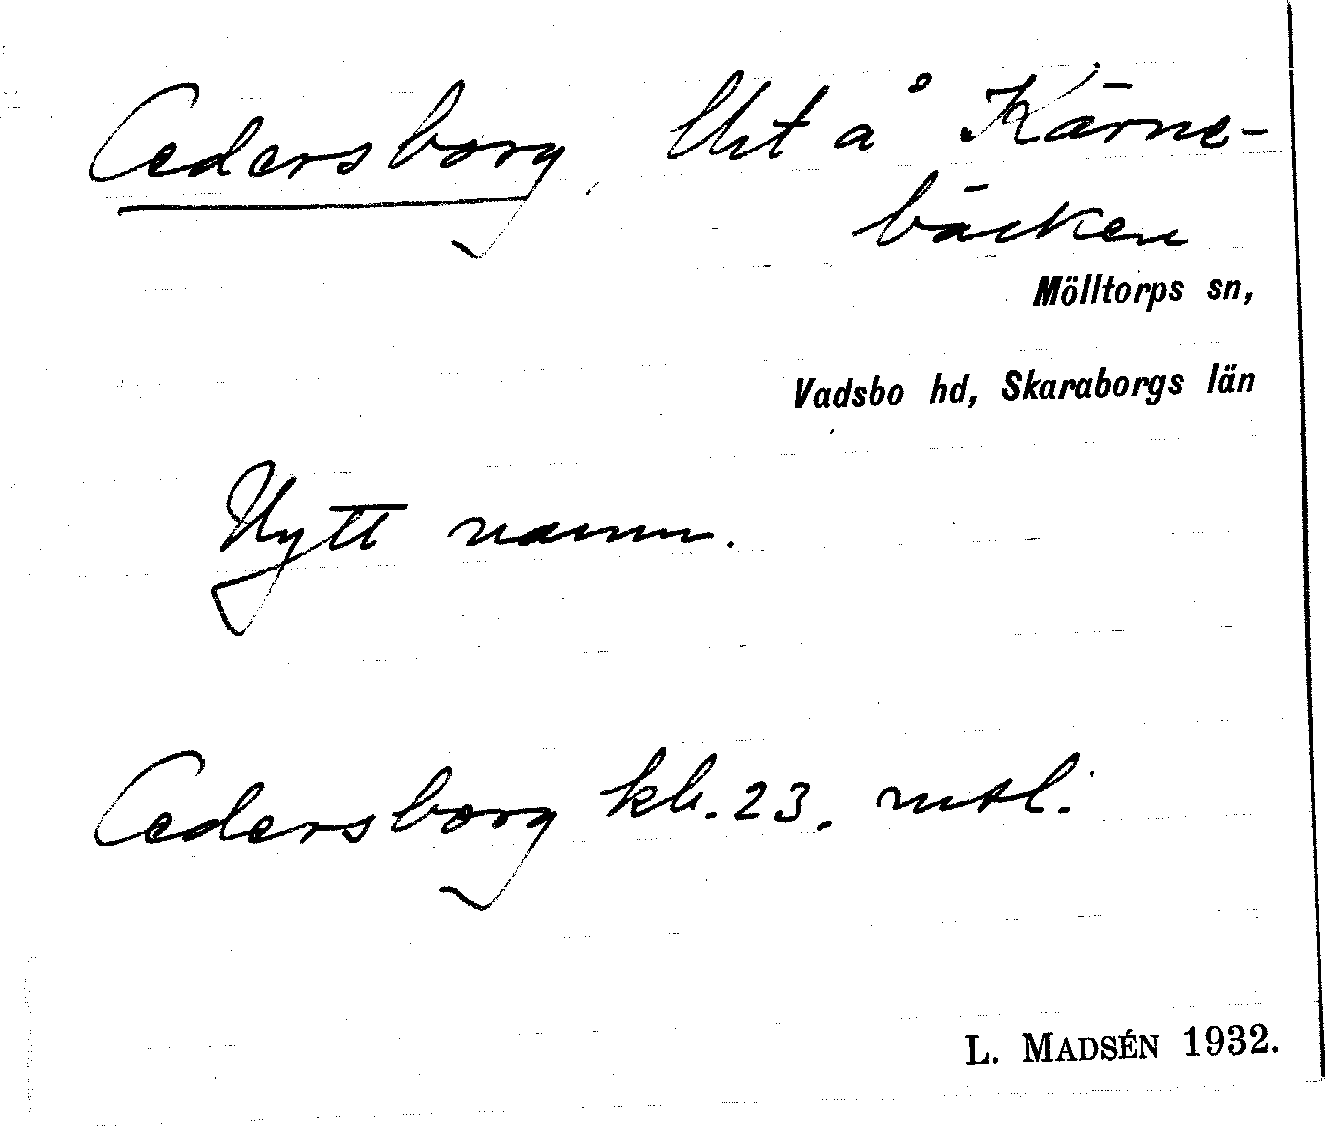 Cedersborg, lht å Kärne-
bäcken
Mölltorps sn,
Vadsbo hd, Skaraborgs län
Nytt namn.
Cedersborg kb. 23. mtl.
L. MADSÉN 1932.